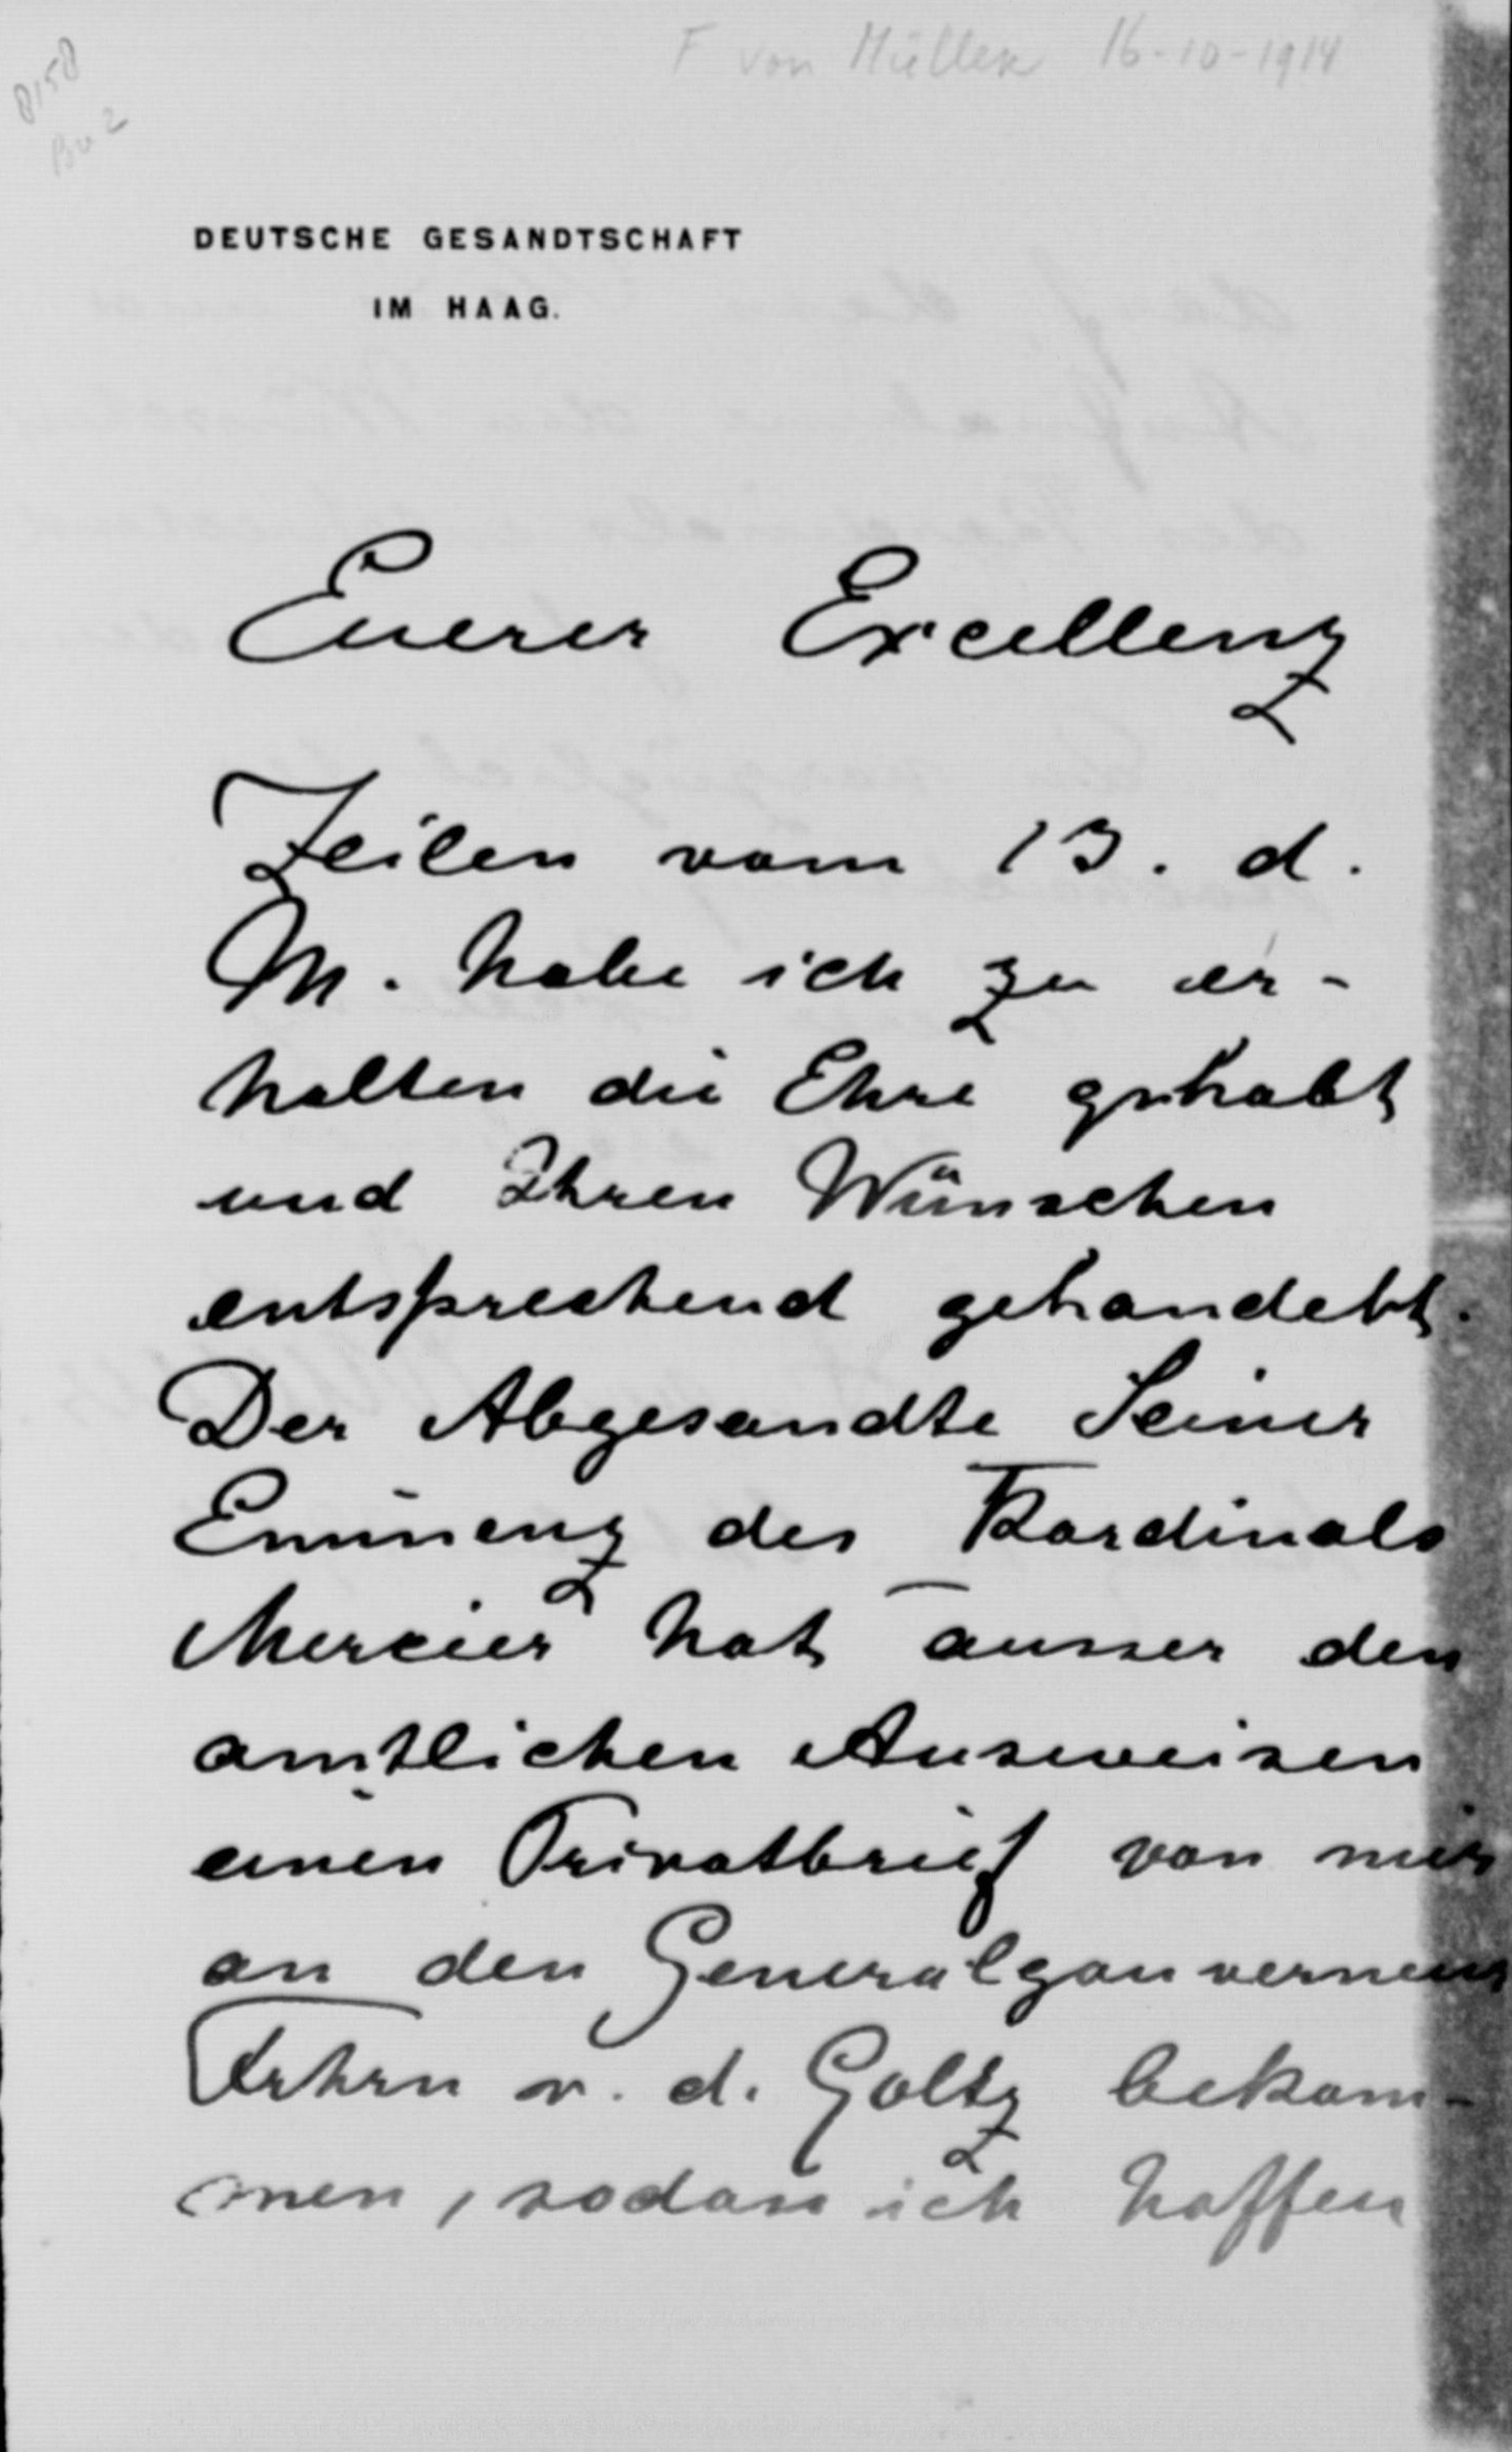 F von Müller 16-10-1914
8158
Bu 2
DEUTSCHE GESANDTSCHAFT
IM HAAG.
Euerer Excellenz
Zeilen vom 13. d.
M. habe ich zu er-
halten die Ehre gehabt
und Ihren Wünschen
entsprechend gehandelt.
Der Abgesandte Seiner
Eminenz des Kardinals
Mercier hat ausser den
amtlichen Ausweisen
einen Privatbrief von mir
an den Generalgouverneur
Frhrn v. d. Goltz bekom-
men, sodass ich hoffen